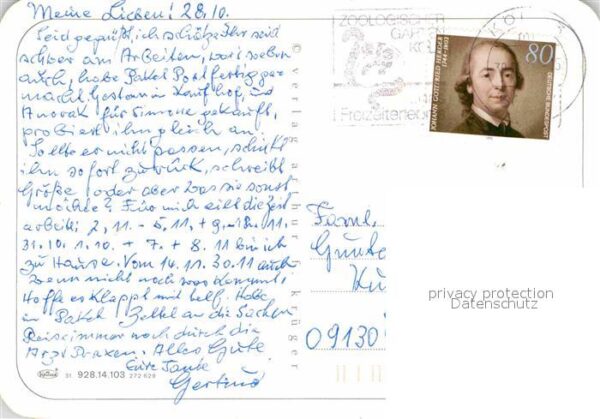 Meine Lieben! 28.10.
Seid gegrüßt, ich schätze Ihr seid
schwer am Arbeiten,
auch, habe Paket Postfertig ge-
macht. Gestern in Kaufhof, und
Anorak für Simone gekauft,
probiert ihn gleich an.
Sollte er nicht passen, schickt
ihn sofort zurück, schreibt
Größe oder aber was sie sonst
möchte? Für mich eilt die Zeit
arbeite: 2.11. - 5.11. + 9. 11.
31.10. 1.10. + 7. + 8.11 bin ich
zu Hause. Vom 14.11. 30.11 auch
wenn nicht noch was kommt.
Hoffe es klappt mit Habe
in Paket Zettel an die Sachen
Reise immer noch durch die
Arzt Praxen. Alles Gute
Eure Tante
Gertrud
verlag arthur krüger
Krüger
51 928.14.103 272 628
ZOOLOGISCHER
GARTEN
KÖLN
Freizeiten
KÖLN
80
JOHANN GOTTFRIED HERDER
1744-1803
DEUTSCHE BUNDESPOST
Faml.
Günte
Kü
09130
privacy protection
Datenschutz